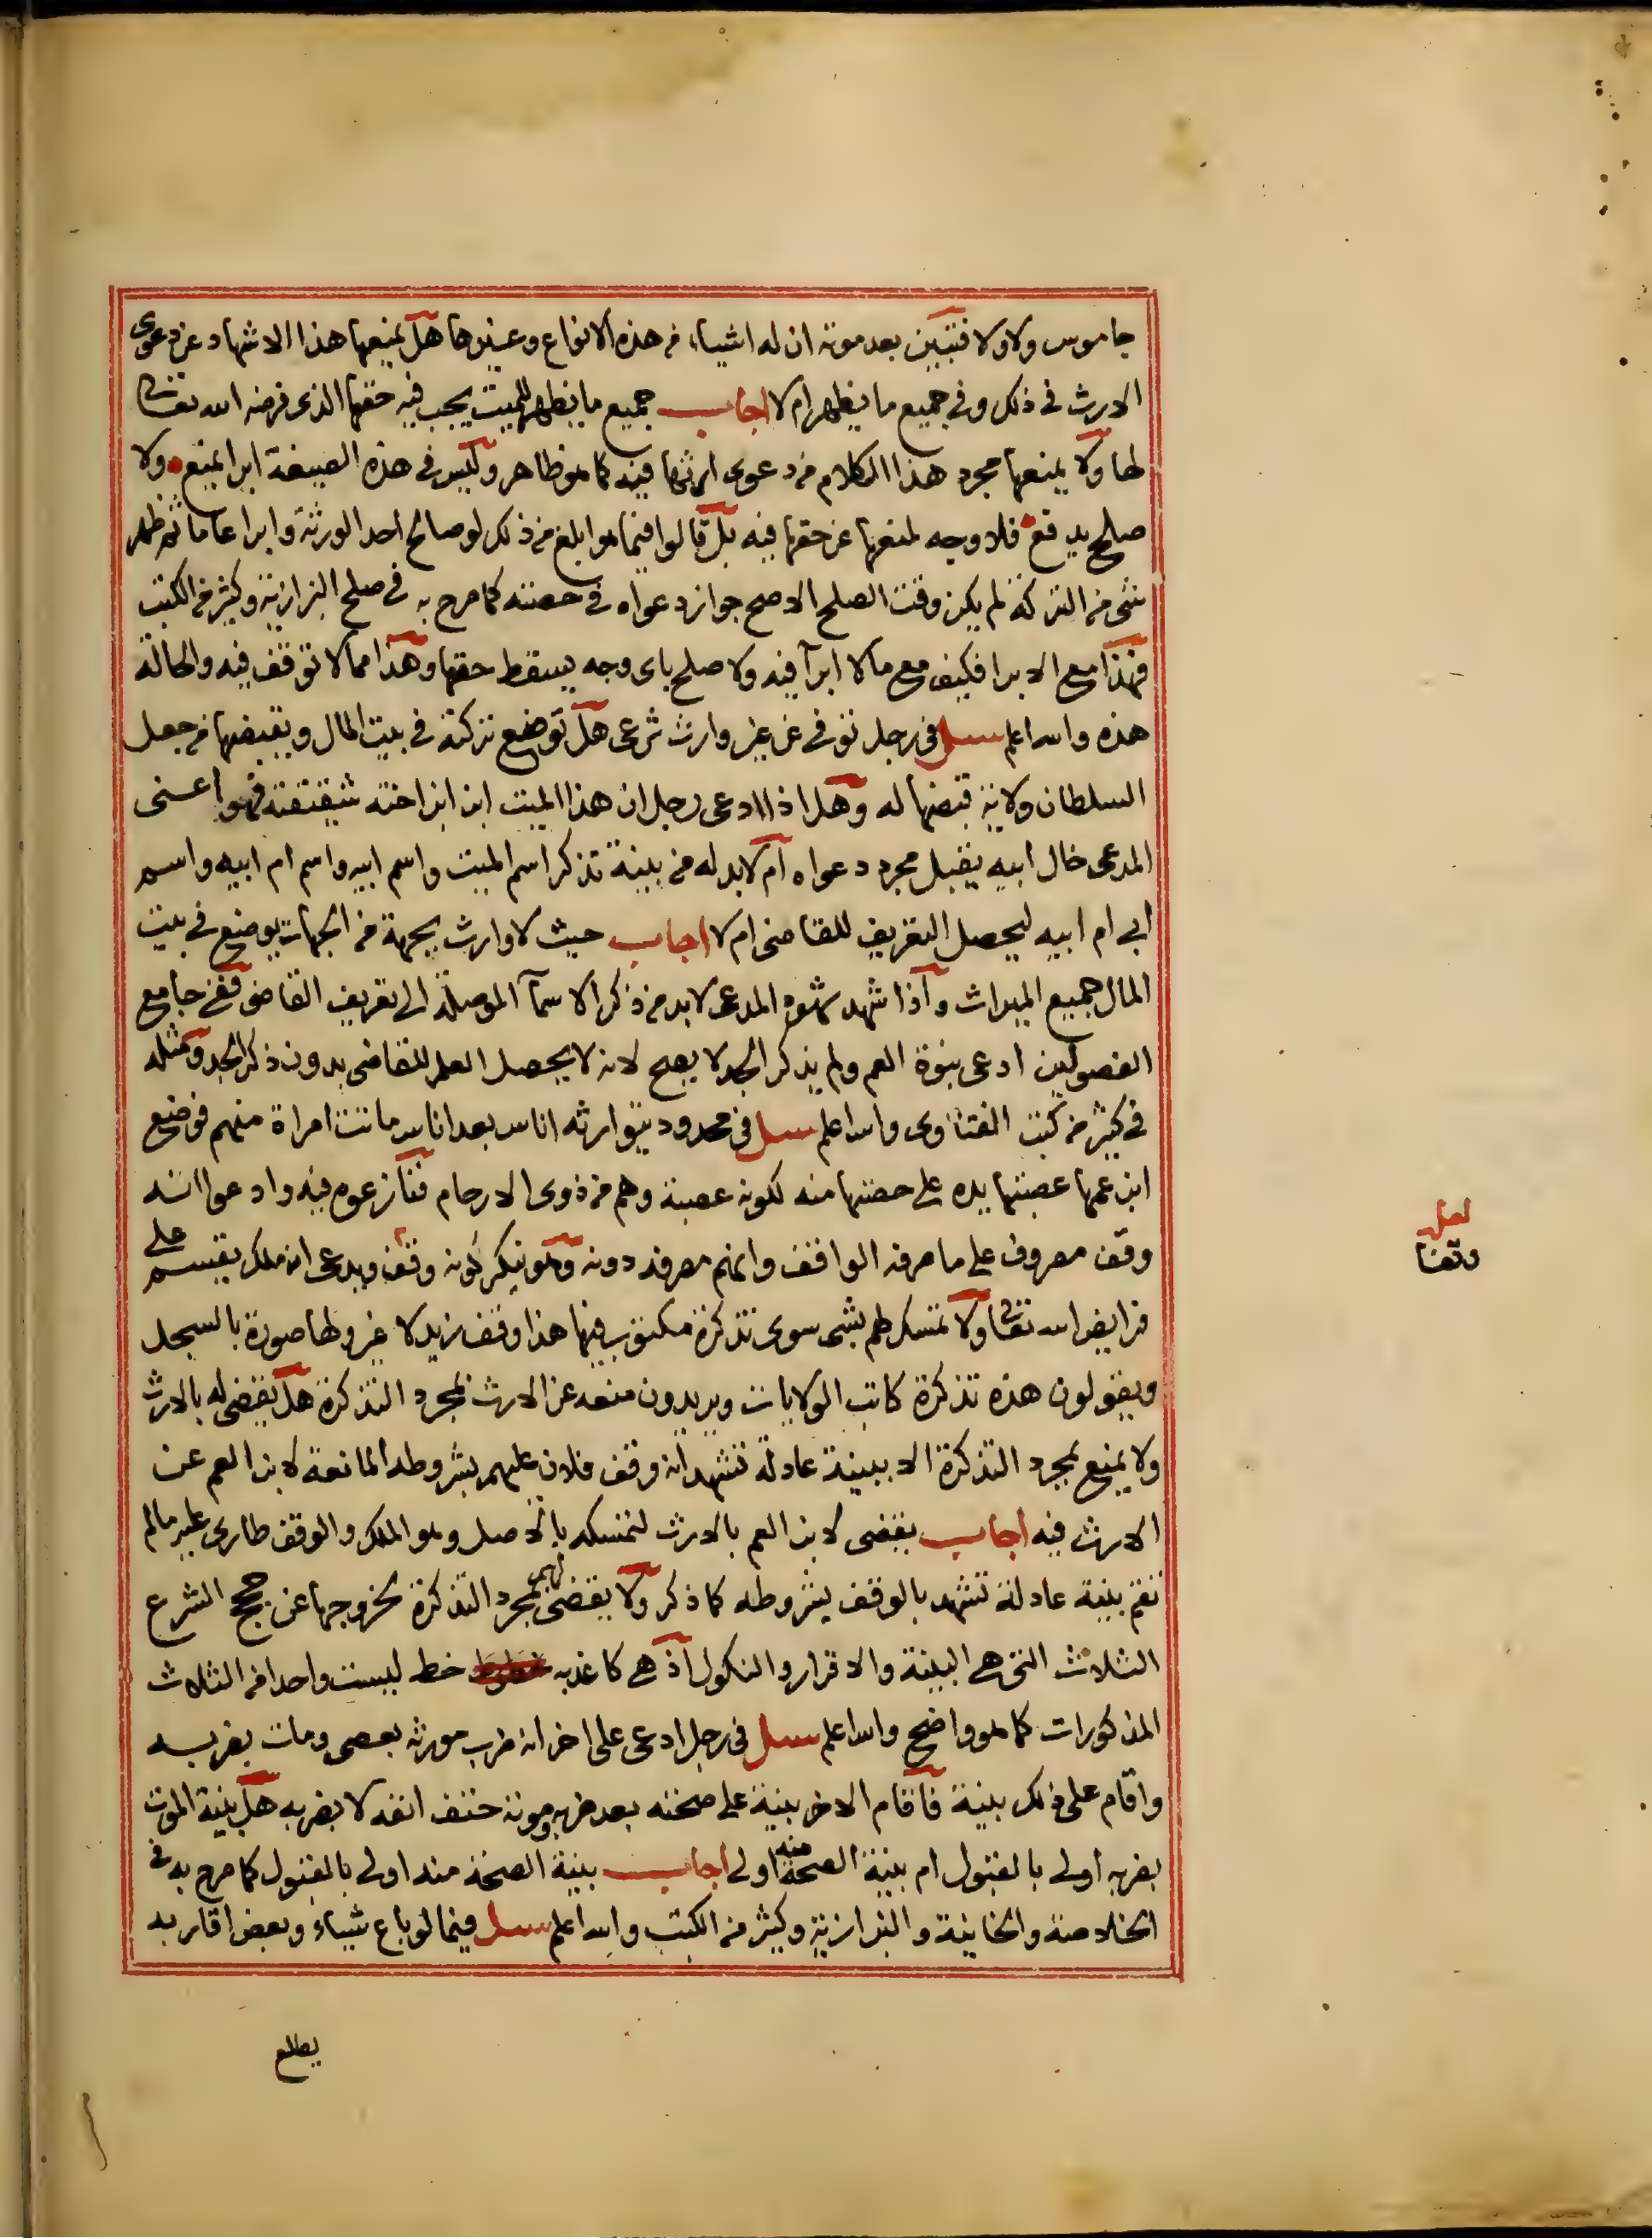 جاموس ولا ولا فتبين بعد موته ان له اشياء من هذه الانواع وغيرها هل يمنعها هذا الاشهاد عن دعوى
الارث في ذلك وفي جميع ما يظهر ام لا اجاب جميع ما يظهر للميت يجب فيه حقها الذي فرضه الله تعالى
لها ولا يمنعها مجرد هذا الكلام من دعوى ارثها فيه كما هو ظاهر وليس في هذه الصيغة ابرا يمنع ولا
صلح يدفع فلا وجه لمنعها عن حقها فيه بل قالوا فيما هو ابلغ من ذلك لو صالح احد الورثة وابرا عاما ثم ظهر
شي من التركة لم يكن وقت الصلح الاصح جواز دعواه في حصته كما صرح به في صلح البزازية وكثير من الكتب
فهذا مع الابرا فكيف مع ما لا ابرآ فيه ولا صلح باي وجه يسقط حقها وهذا مما لا توقف فيه والحالة
هذه والله اعلم سيل في رجل توفي عن غير وارث شرعي هل توضع تركته في بيت المال ويقبضها من جعل
السلطان ولاية قبضها له وهل اذا ادعى رجل ان هذا الميت ابن ابن اخته شقيقته فهو اعني
المدعى خال ابيه يقبل مجرد دعواه ام لا بد له من بينة تذكر اسم الميت واسم ابيه واسم ام ابيه واسم
ابي ام ابيه ليحصل التعريف للقاضي ام لا اجاب حيث لا وارث بجهة من الجهات يوضع في بيت
المال جميع الميراث واذا شهد شهود المدعى لا بد من ذكر الاسمآ الموصلة الى تعريف القاضي ففي جامع
الفصولين ادعى بنوة العم ولم يذكر الجد لا يصح لانه لا يحصل العلم للقاضي بدون ذكر الجد ومثله
في كثير من كتب الفتاوى والله اعلم سيل في محدود يتوارثه اناس بعد اناس ماتت امراة منهم فوضع
ابن عمها عصبتها يده على حصتها منه لكونه عصبة وهم من ذوى الارحام فتنازعوه فيه وادعوا انه
وقف مصروف على ما صرفه الواقف وانهم مصرفه دونه وهو ينكر كونه وقف ويدعى انه ملك يقسم على
فرايض الله تعالى ولا تمسك لهم بشي سوى تذكرة مكتوب فيها هذا وقف زيد لا غير ولها صورة بالسجل
ويقولون هذه تذكرة كاتب الولايات ويريدون منعه عن الارث بمجرد التذكرة هل يقضى له بالارث
ولا يمنع بمجرد التذكرة الا ببينة عادلة تشهد انه وقف فلان عليهم بشروطه المانعة لابن العم عن
الارث فيه اجاب يقضى لابن العم بالارث لتمسكه بالاصل وهو الملك والوقف طارى عليه ما لم
تقم بينة عادلة تشهد بالوقف بشروطه كما ذكر ولا يقضى لهم بمجرد التذكرة لخروجها عن حجج الشرع
الثلاث التي هي البينة والاقرار والنكول اذ هي كاغد به خط ليست واحدا من الثلاث
المذكورات كما هو واضح والله اعلم سيل في رجل ادعى على اخر انه ضرب مورثه بعصى ومات بضربه
واقام على ذلك بينة فاقام الاخر بينة على صحته بعد ضربه وموته حتف انفه لا بضربه هل بينة الموت
بضربه اولى بالقبول ام بينة الصحة منه اولى اجاب بينة الصحة منه اولى بالقبول كما صرح به في
الخلاصة والخانية والبزازية وكثير من الكتب والله اعلم سيل فيما لو باع شياء وبعض اقاربه
لعل
وقفا
يطلع